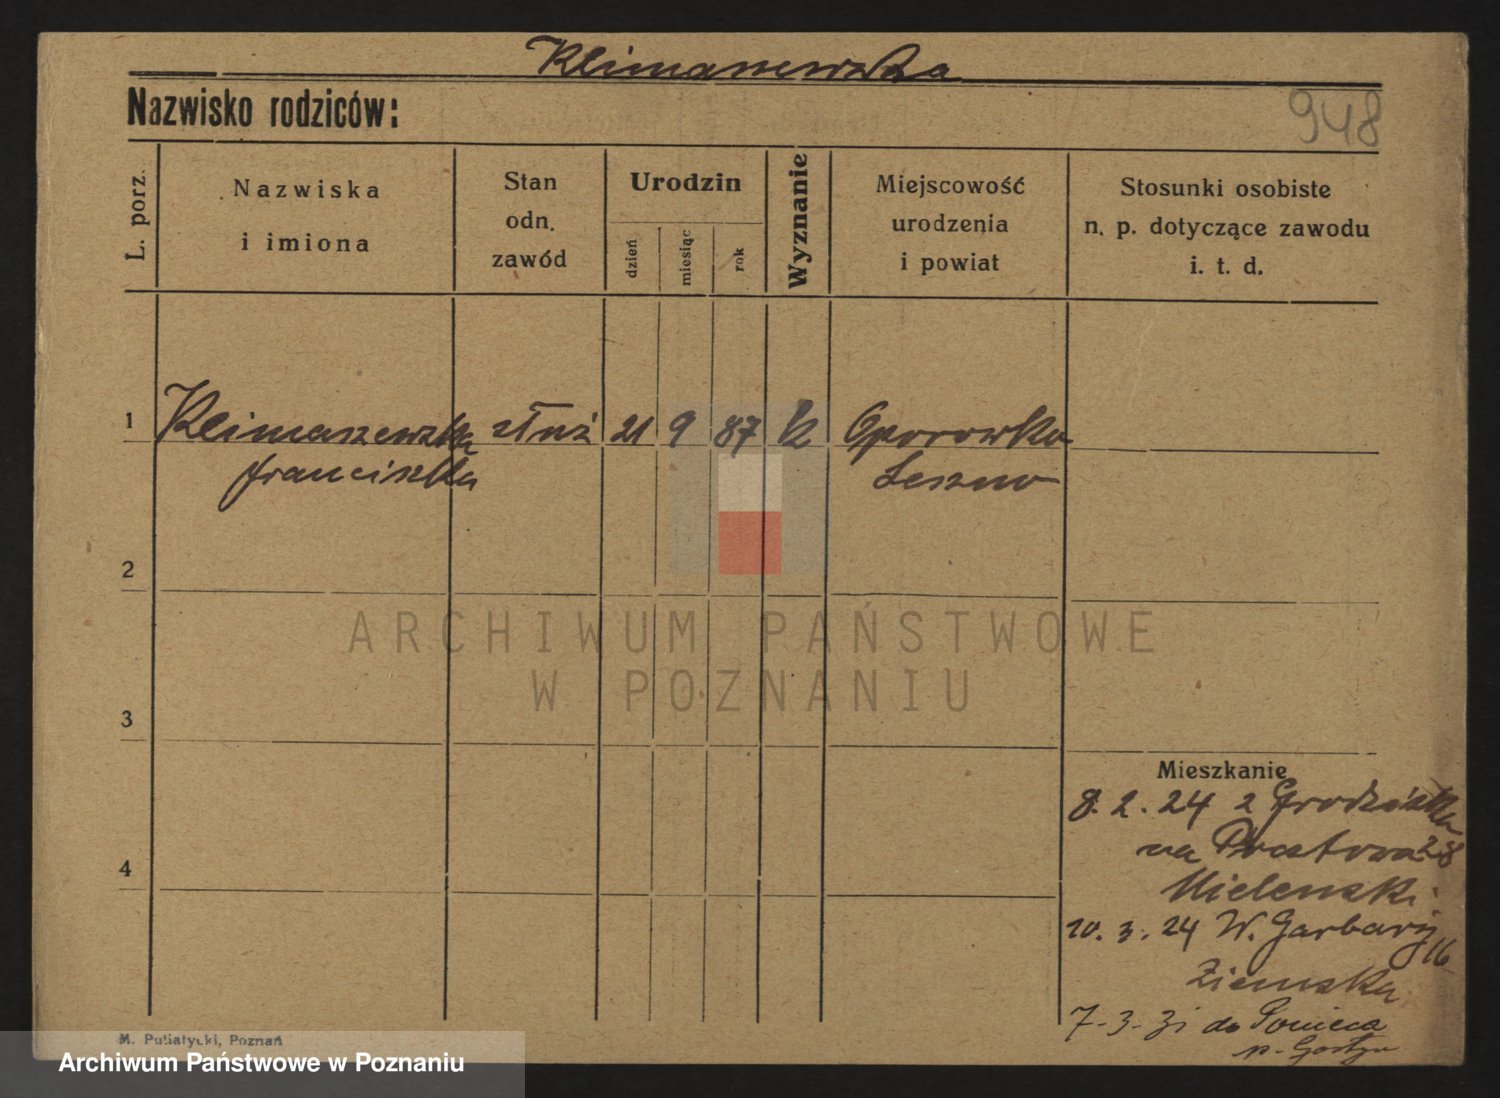 Klimaszewska
Nazwisko rodziców:
948
L. porz.
Nazwiska
i imiona
Stan
odn.
zawód
Urodzin
dzień
miesiąc
rok
Wyznanie
Miejscowość
urodzenia
i powiat
Stosunki osobiste
n. p. dotyczące zawodu
i. t. d.
1 Klimaszewska służ 21 9 87 k Oporowko
Franciszka Leszno
2
3
4
Mieszkanie
8. 2. 24 z Grodziska
na Pocztowa 28
Mielenski
10. 3. 24 W. Garbary 16
Ziemska
7-3-31 do Ponieca
p. Gostyn
M. Putiatycki, Poznań
ARCHIWUM PAŃSTWOWE
W POZNANIU
Archiwum Państwowe w Poznaniu